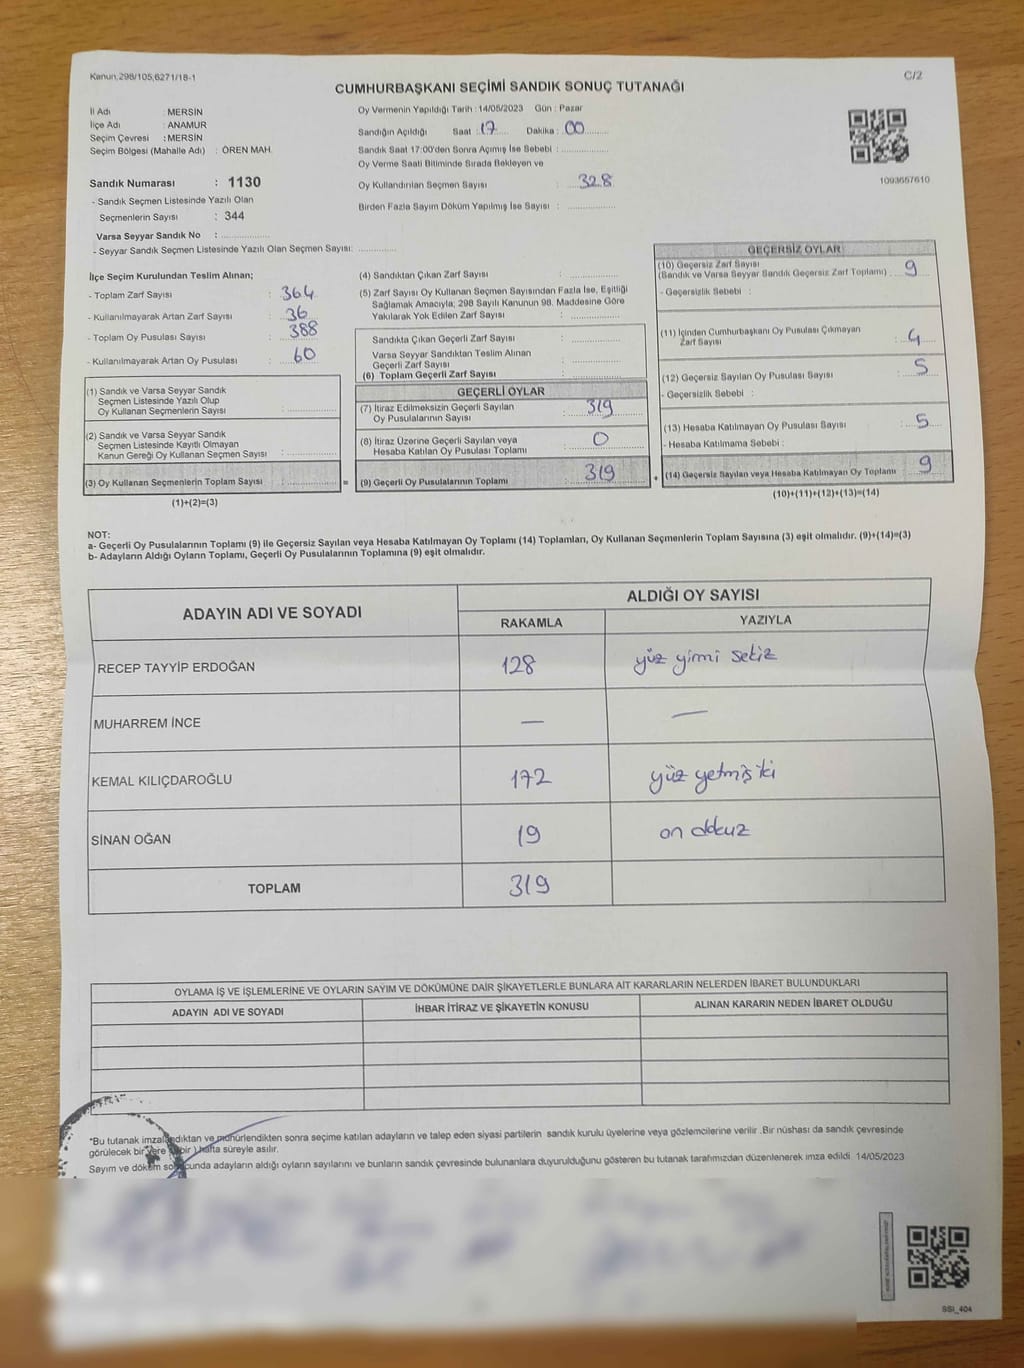 Kanun,298/105,6271/18-1
C/2
CUMHURBAŞKANI SEÇİMİ SANDIK SONUÇ TUTANAĞI
İl Adı : MERSİN
İlçe Adı : ANAMUR
Seçim Çevresi : MERSİN
Seçim Bölgesi (Mahalle Adı) : ÖREN MAH.
Sandık Numarası : 1130
- Sandık Seçmen Listesinde Yazılı Olan
Seçmenlerin Sayısı : 344
Varsa Seyyar Sandık No : ................
- Seyyar Sandık Seçmen Listesinde Yazılı Olan Seçmen Sayısı: ............
Oy Vermenin Yapıldığı Tarih : 14/05/2023 Gün : Pazar
Sandığın Açıldığı Saat : 17 Dakika : 00
Sandık Saat 17:00'den Sonra Açımış İse Sebebi : ................
Oy Verme Saati Bitiminde Sırada Bekleyen ve
Oy Kullandırılan Seçmen Sayısı : 328
Birden Fazla Sayım Döküm Yapılmış İse Sayısı : ................
1093657610
İlçe Seçim Kurulundan Teslim Alınan;
- Toplam Zarf Sayısı : 364
- Kullanılmayarak Artan Zarf Sayısı : 36
- Toplam Oy Pusulası Sayısı : 388
- Kullanılmayarak Artan Oy Pusulası : 60
(1) Sandık ve Varsa Seyyar Sandık
Seçmen Listesinde Yazılı Olup
Oy Kullanan Seçmenlerin Sayısı : ................
(2) Sandık ve Varsa Seyyar Sandık
Seçmen Listesinde Kayıtlı Olmayan
Kanun Gereği Oy Kullanan Seçmen Sayısı : ................
(3) Oy Kullanan Seçmenlerin Toplam Sayısı : ................ =
(1)+(2)=(3)
(4) Sandıktan Çıkan Zarf Sayısı : ................
(5) Zarf Sayısı Oy Kullanan Seçmen Sayısından Fazla İse, Eşitliği
Sağlamak Amacıyla, 298 Sayılı Kanunun 98. Maddesine Göre
Yakılarak Yok Edilen Zarf Sayısı : ................
Sandıkta Çıkan Geçerli Zarf Sayısı : ................
Varsa Seyyar Sandıktan Teslim Alınan
Geçerli Zarf Sayısı : ................
(6) Toplam Geçerli Zarf Sayısı : ................
GEÇERLİ OYLAR
(7) İtiraz Edilmeksizin Geçerli Sayılan
Oy Pusulalarının Sayısı : 319
(8) İtiraz Üzerine Geçerli Sayılan veya
Hesaba Katılan Oy Pusulası Toplamı : 0
(9) Geçerli Oy Pusulalarının Toplamı : 319 +
GEÇERSİZ OYLAR
(10) Geçersiz Zarf Sayısı
(Sandık ve Varsa Seyyar Sandık Geçersiz Zarf Toplamı) : 9
- Geçersizlik Sebebi :
(11) İçinden Cumhurbaşkanı Oy Pusulası Çıkmayan
Zarf Sayısı : 4
(12) Geçersiz Sayılan Oy Pusulası Sayısı : 5
- Geçersizlik Sebebi :
(13) Hesaba Katılmayan Oy Pusulası Sayısı : 5
- Hesaba Katılmama Sebebi :
(14) Geçersiz Sayılan veya Hesaba Katılmayan Oy Toplamı : 9
(10)+(11)+(12)+(13)=(14)
NOT:
a- Geçerli Oy Pusulalarının Toplamı (9) ile Geçersiz Sayılan veya Hesaba Katılmayan Oy Toplamı (14) Toplamları, Oy Kullanan Seçmenlerin Toplam Sayısına (3) eşit olmalıdır. (9)+(14)=(3)
b- Adayların Aldığı Oyların Toplamı, Geçerli Oy Pusulalarının Toplamına (9) eşit olmalıdır.
ADAYIN ADI VE SOYADI
ALDIĞI OY SAYISI
RAKAMLA YAZIYLA
RECEP TAYYİP ERDOĞAN 128 yüz yirmi sekiz
MUHARREM İNCE — —
KEMAL KILIÇDAROĞLU 172 yüz yetmiş iki
SİNAN OĞAN 19 on dokuz
TOPLAM 319
OYLAMA İŞ VE İŞLEMLERİNE VE OYLARIN SAYIM VE DÖKÜMÜNE DAİR ŞİKAYETLERLE BUNLARA AİT KARARLARIN NELERDEN İBARET BULUNDUKLARI
ADAYIN ADI VE SOYADI İHBAR İTİRAZ VE ŞİKAYETİN KONUSU ALINAN KARARIN NEDEN İBARET OLDUĞU
*Bu tutanak imzalandıktan ve mühürlendikten sonra seçime katılan adayların ve talep eden siyasi partilerin sandık kurulu üyelerine veya gözlemcilerine verilir .Bir nüshası da sandık çevresinde
görülecek bir yere (bir ) hafta süreyle asılır.
Sayım ve döküm sonucunda adayların aldığı oyların sayılarını ve bunların sandık çevresinde bulunanlara duyurulduğunu gösteren bu tutanak tarafımızdan düzenlenerek imza edildi 14/05/2023
SSI_404